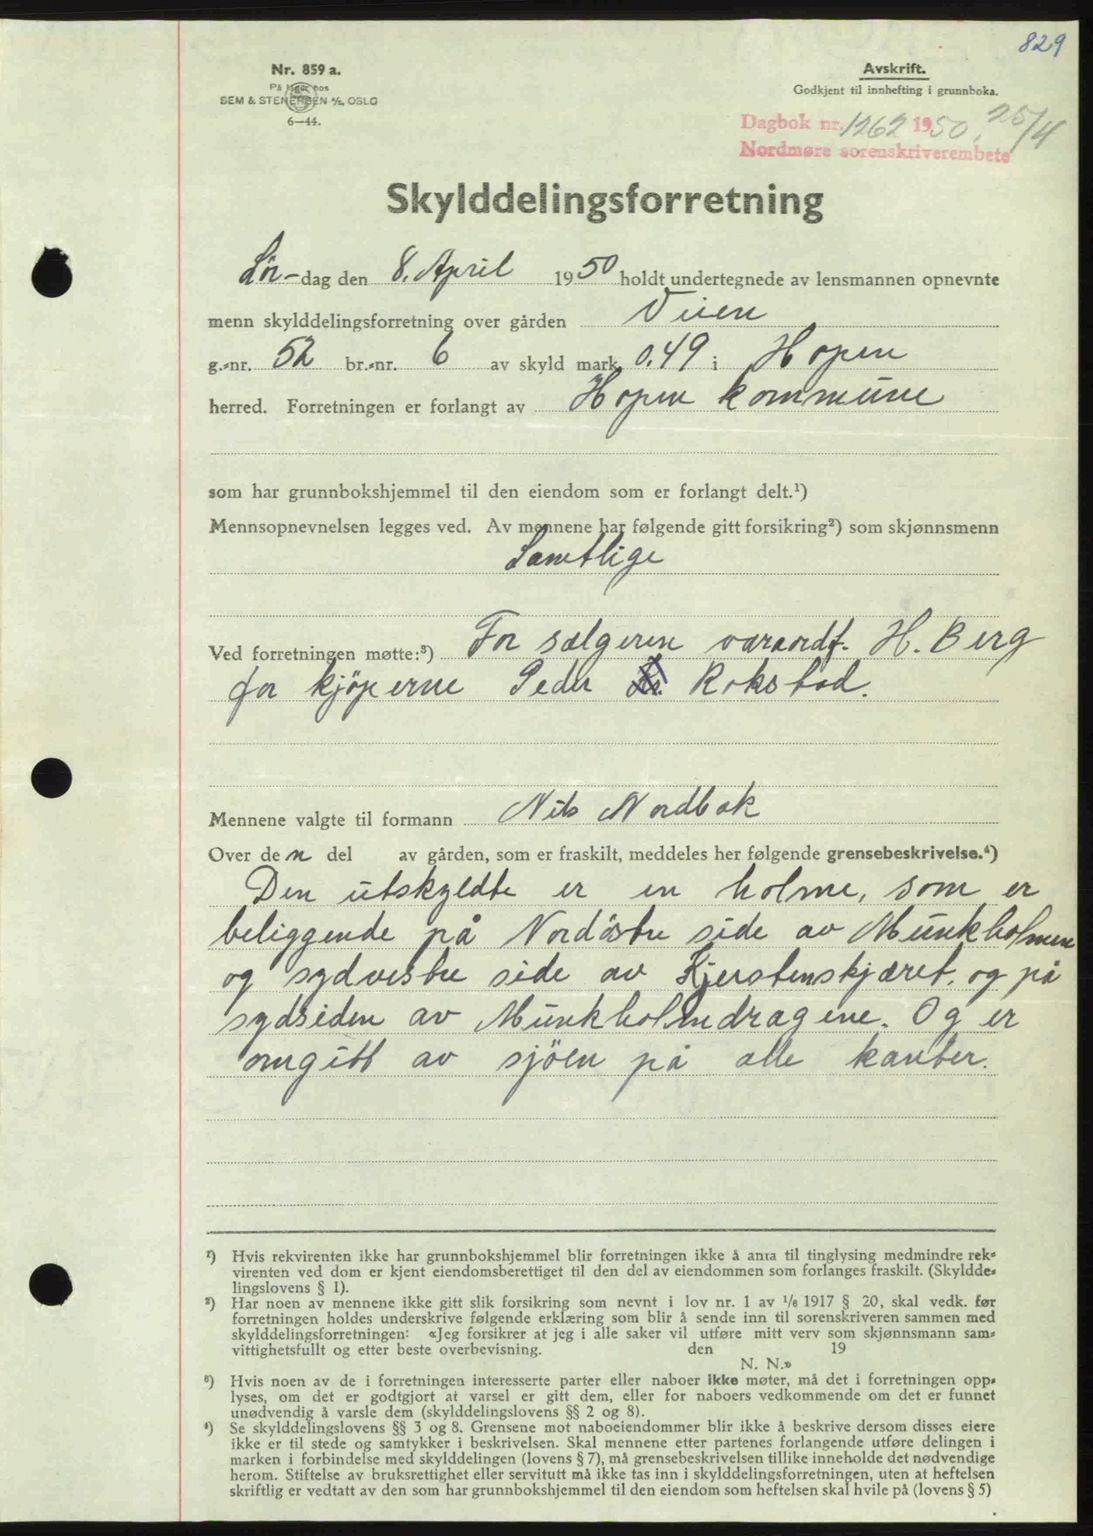 829
Nr. 859 a.
På lager hos
SEM & STENERSEN A/S, OSLO
6—44.
Avskrift.
Godkjent til innhefting i grunnboka.
Dagbok nr. 1262 1950. 25/4
Nordmøre sorenskriverembete
Skylddelingsforretning
Lör-dag den 8. April 1950 holdt undertegnede av lensmannen opnevnte
menn skylddelingsforretning over gården Vuen
g.-nr. 52 br.-nr. 6 av skyld mark 0.49 i Hopen
herred. Forretningen er forlangt av Hopen kommune
som har grunnbokshjemmel til den eiendom som er forlangt delt.¹)
Mennsopnevnelsen legges ved. Av mennene har følgende gitt forsikring²) som skjønnsmenn
Samtlige
Ved forretningen møtte:³) For sælgeren varaordf. H. Berg
for kjöperne Peder Rokstad.
Mennene valgte til formann Nils Nordbak
Over den del av gården, som er fraskilt, meddeles her følgende grensebeskrivelse.⁴)
Den utskyldte er en holme, som er
beliggende på Nordöstre side av Munkholmen
og sydvestre side av Kjerstenskjæret. og på
sydsiden av Munkholmdragene. Og er
omgitt av sjöen på alle kanter.
¹) Hvis rekvirenten ikke har grunnbokshjemmel blir forretningen ikke å anta til tinglysing medmindre rek-
virenten ved dom er kjent eiendomsberettiget til den del av eiendommen som forlanges fraskilt. (Skyldde-
lingslovens § 1).
²) Har noen av mennene ikke gitt slik forsikring som nevnt i lov nr. 1 av ¹/₆ 1917 § 20, skal vedk. før
forretningen holdes underskrive følgende erklæring som blir å sende inn til sorenskriveren sammen med
skylddelingsforretningen: «Jeg forsikrer at jeg i alle saker vil utføre mitt verv som skjønnsmann sam-
vittighetsfullt og etter beste overbevisning. den 19
N. N.»
³) Hvis noen av de i forretningen interesserte parter eller naboer ikke møter, må det i forretningen opp-
lyses, om det er godtgjort at varsel er gitt dem, eller for naboers vedkommende om det er funnet
unødvendig å varsle dem (skylddelingslovens §§ 2 og 8).
⁴) Se skylddelingslovens §§ 3 og 8. Grensene mot naboeiendommer blir ikke å beskrive dersom disses eiere
ikke er til stede og samtykker i beskrivelsen. Skal mennene etter partenes forlangende utføre delingen i
marken i forbindelse med skylddelingen (lovens § 7), må grensebeskrivelsen tillike inneholde det nødvendige
herom. Stiftelse av bruksrettighet eller servitutt må ikke tas inn i skylddelingsforretningen, uten at heftelsen
skriftlig er vedtatt av den som har grunnbokshjemmel til den eiendom som heftelsen skal hvile på (lovens § 5)